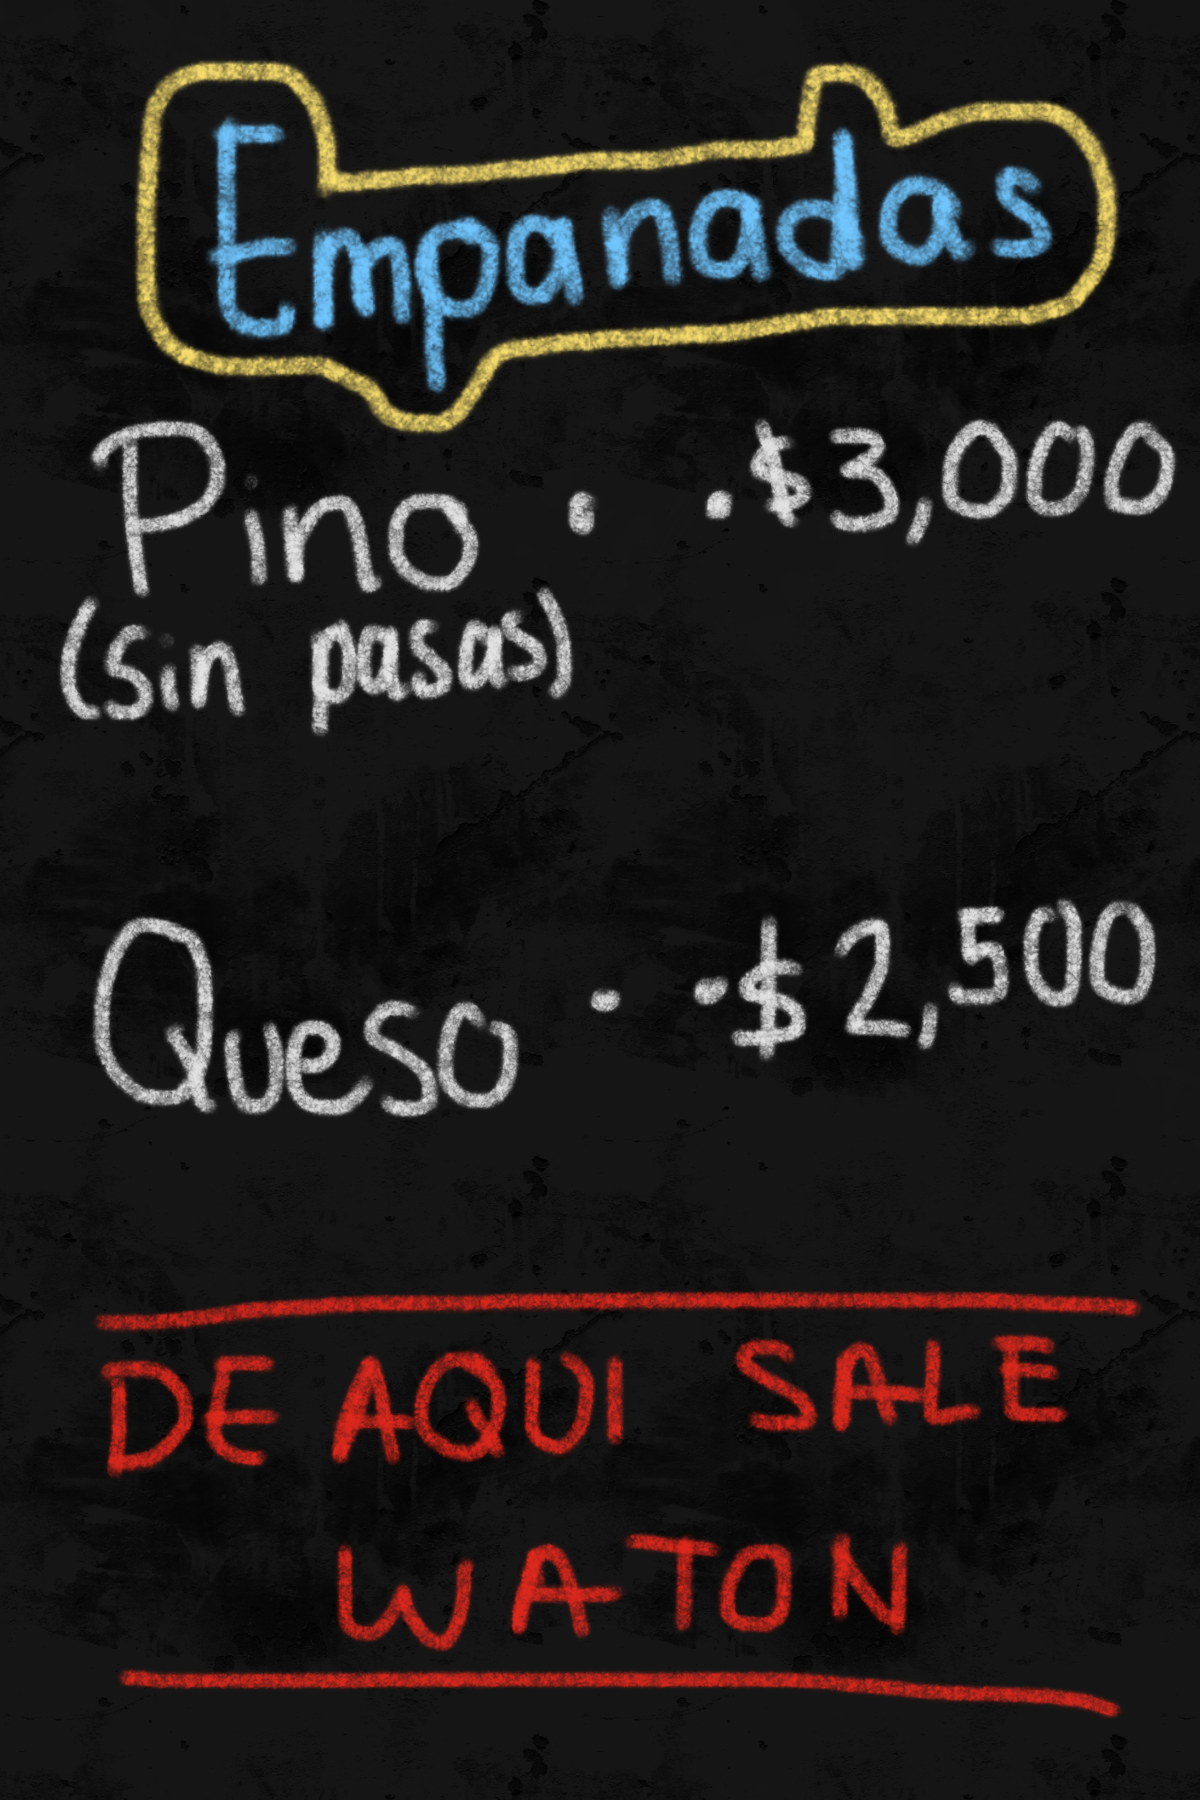 Empanadas
Pino . . $3,000
(sin pasas)
Queso . . $2,500
DE AQUI SALE
WATON